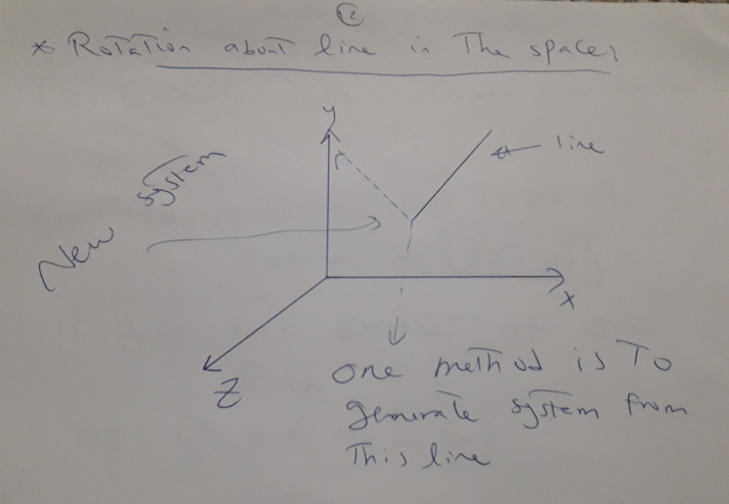 ②
* Rotation about line in The space:
y
line
New system
x
Z
one method is To
generate system from
This line